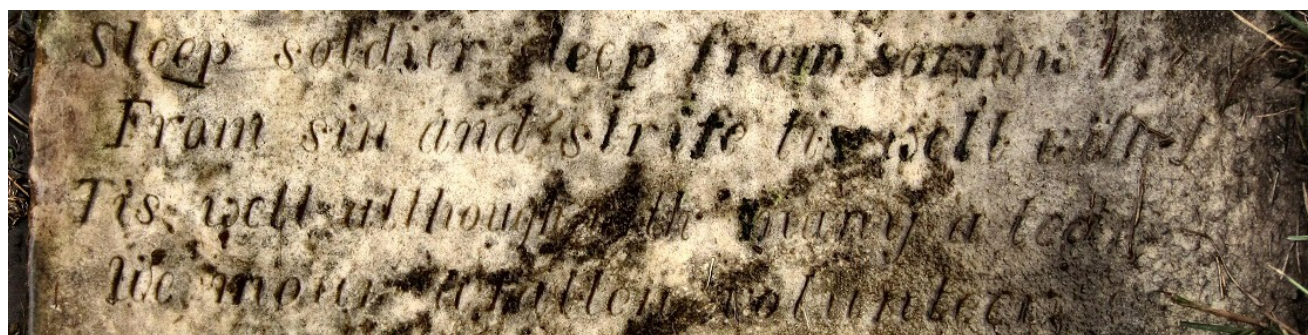 Sleep soldier sleep from sorrow
From sin and strife tis well with
Tis well although th many a tear
We mourn a fallen volunteer